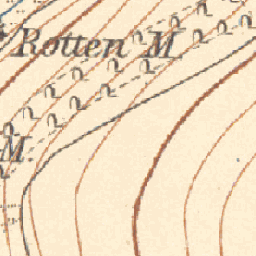 Rotten M
M